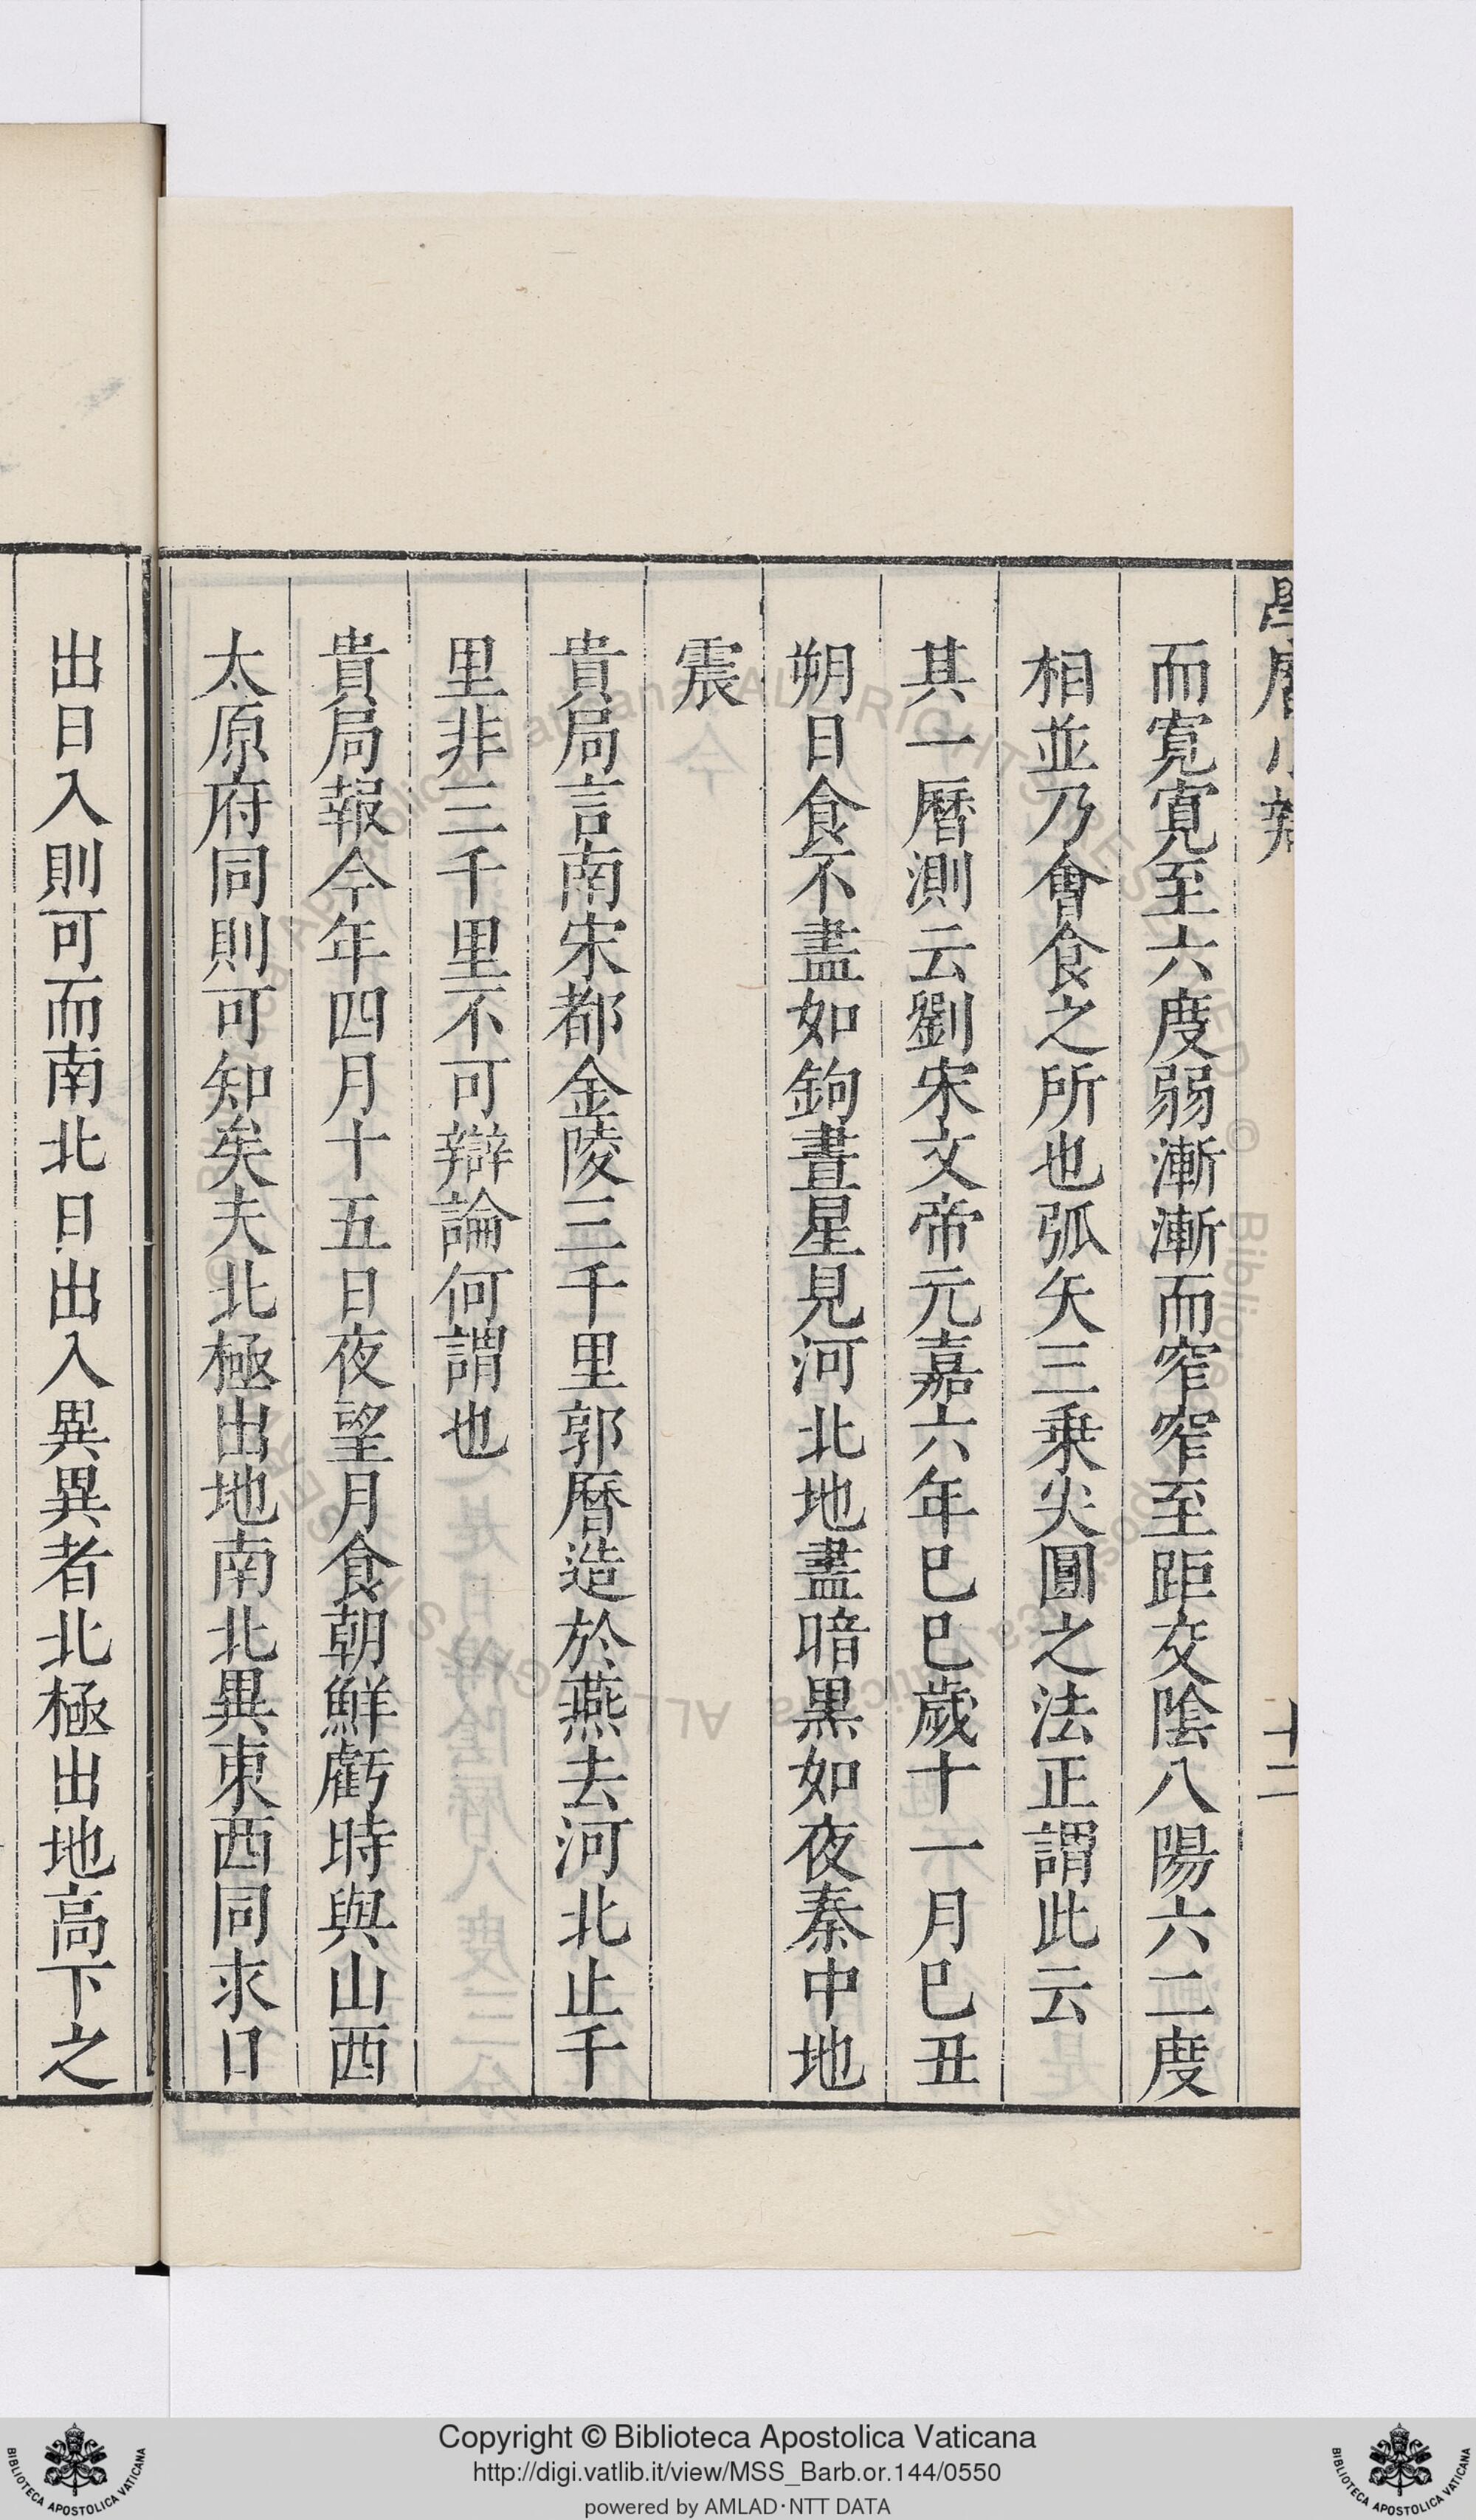 而寬寬至六度弱漸漸而窄窄至距交隂八陽六二度
相並乃會食之所也弧矢三乗尖圓之法正謂此云
其一曆測云劉宋文帝元嘉六年巳巳歲十一月巳丑
朔日食不盡如鉤晝星見河北地盡暗黒如夜秦中地
震
貴局言南宋都金陵三千里郭曆造於燕去河北止千
里非三千里不可辯論何謂也
貴局報今年四月十五日夜望月食朝鮮虧時與山西
太原府同則可知矣夫北極出地南北異東西同求日
出日入則可而南北日出入異異者北極出地高下之
十二
Copyright © Biblioteca Apostolica Vaticana
http://digi.vatlib.it/view/MSS_Barb.or.144/0550
powered by AMLAD·NTT DATA
BIBLIOTECA APOSTOLICA VATICANA
BIBLIOTECA APOSTOLICA VATICANA